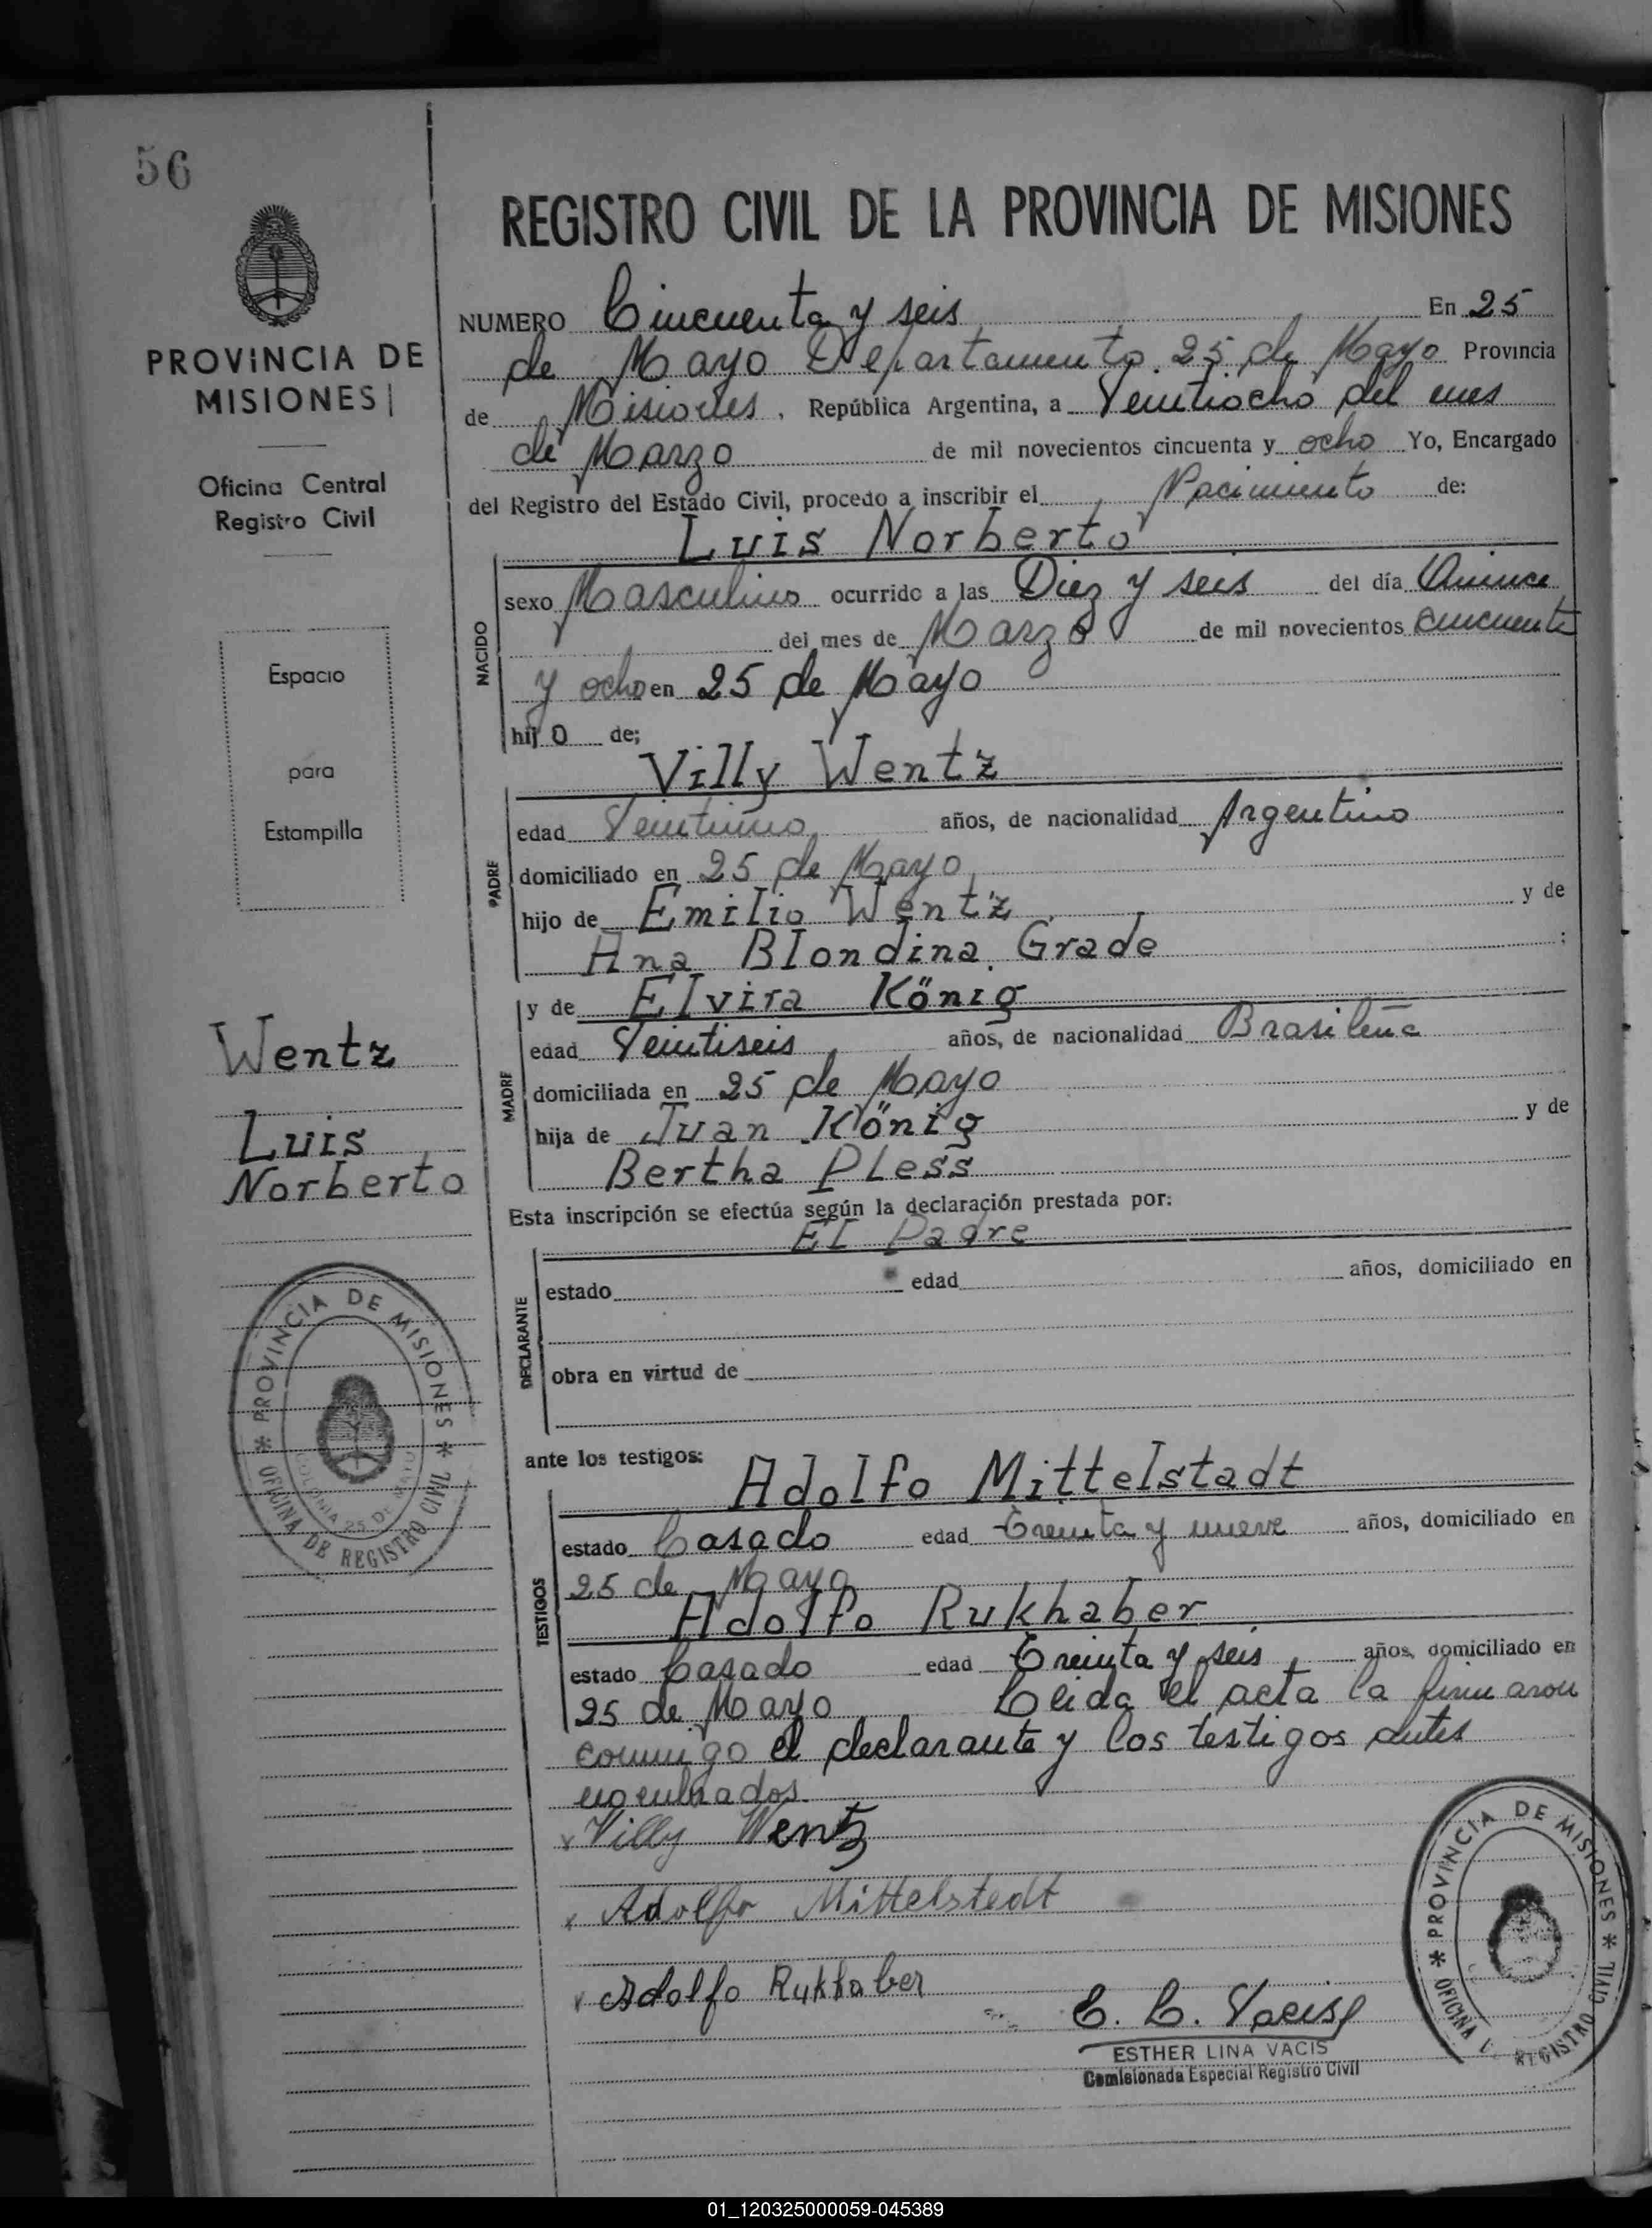 56
REGISTRO CIVIL DE LA PROVINCIA DE MISIONES
PROVINCIA DE
MISIONES
Oficina Central
Registro Civil
Espacio
para
Estampilla
Wentz
Luis
Norberto
PROVINCIA DE MISIONES
OFICINA DE REGISTRO CIVIL
COLONIA 25 DE MAYO
NUMERO Cincuenta y seis En 25
de Mayo Departamento 25 de Mayo Provincia
de Misiones, República Argentina, a Veintiocho del mes
de Marzo de mil novecientos cincuenta y ocho Yo, Encargado
del Registro del Estado Civil, procedo a inscribir el Nacimiento de:
Luis Norberto
NACIDO
sexo Masculino ocurrido a las Diez y seis del día Quince
del mes de Marzo de mil novecientos cincuenta
y ocho en 25 de Mayo
hij o de;
Villy Wentz
PADRE
edad Veintiuno años, de nacionalidad Argentino
domiciliado en 25 de Mayo
hijo de Emilio Wentz y de
Ana Blondina Grade ;
MADRE
y de Elvira König
edad Veintiseis años, de nacionalidad Brasileña
domiciliada en 25 de Mayo
hija de Juan König y de
Bertha Pless
Esta inscripción se efectúa según la declaración prestada por:
El Padre
DECLARANTE
estado edad años, domiciliado en
obra en virtud de
ante los testigos:
Adolfo Mittelstadt
TESTIGOS
estado Casado edad Treinta y nueve años, domiciliado en
25 de Mayo
Adolfo Rukhaber
estado Casado edad Treinta y seis años, domiciliado en
25 de Mayo Leida el acta la firmaron
conmigo el declarante y los testigos antes
nombrados.
x Villy Wentz
x Adolfo Mittelstedt
x Adolfo Rukhaber
E. L. Vacis
ESTHER LINA VACIS
Comisionada Especial Registro Civil
PROVINCIA DE MISIONES
OFICINA REGISTRO CIVIL
01_120325000059-045389